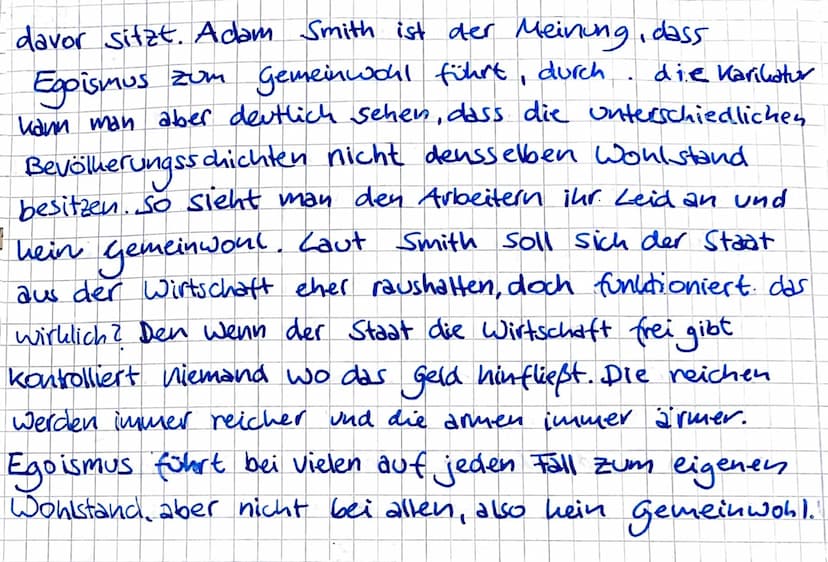 davor sitzt. Adam Smith ist der Meinung, dass
Egoismus zum Gemeinwohl führt, durch . die Karikatur
kann man aber deutlich sehen, dass die unterschiedlichen
Bevölkerungsschichten nicht densselben Wohlstand
besitzen. So sieht man den Arbeitern ihr Leid an und
kein Gemeinwohl. Laut Smith soll sich der Staat
aus der Wirtschaft eher raushalten, doch funktioniert das
wirklich? Den wenn der Staat die Wirtschaft frei gibt
kontrolliert niemand wo das Geld hinfließt. Die reichen
werden immer reicher und die armen immer ärmer.
Egoismus führt bei vielen auf jeden Fall zum eigenen
Wohlstand, aber nicht bei allen, also kein Gemeinwohl.